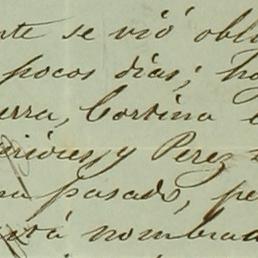 nte se vió obl
pocos días; h
erra, Cortina e
niones y Perez
na pasado, pe
rá nombrad